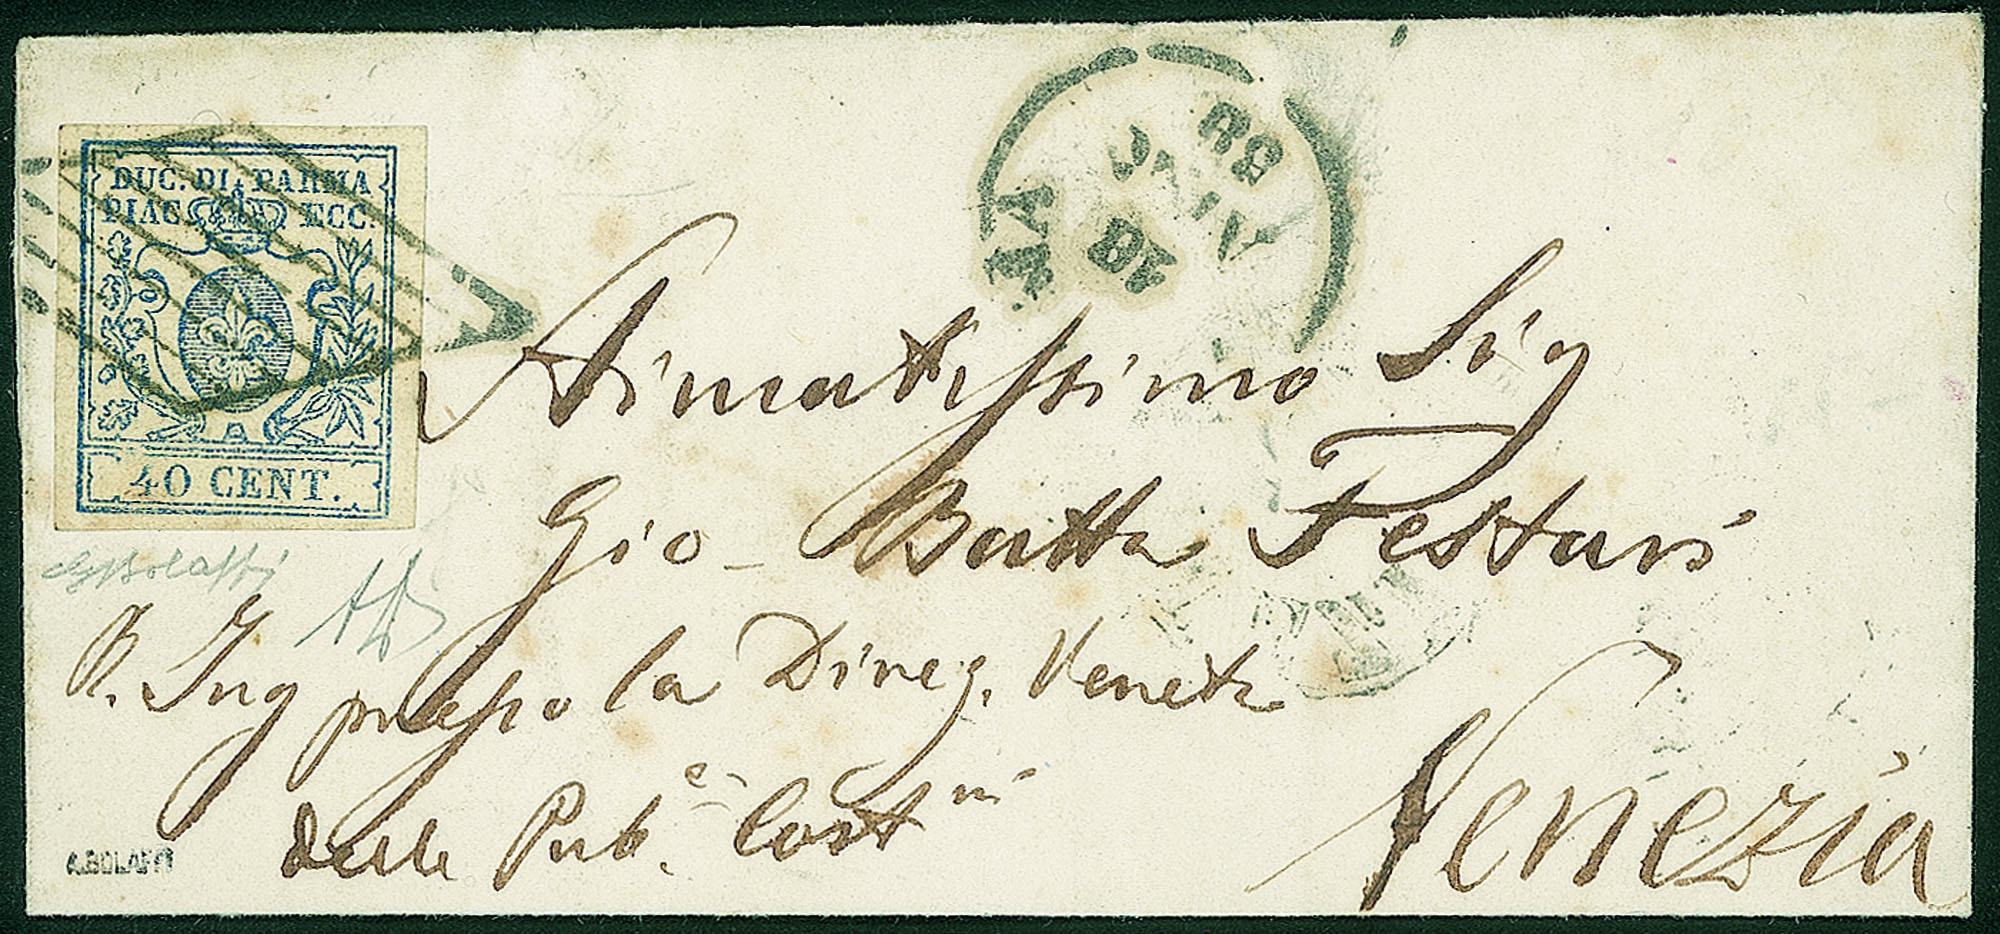 DUC. DI PARMA
PIAC ECC.
40 CENT.
18
Aimatissimo Sig
Gio Batta Festari
R. Ing prepo la Direz. Veneta
delle Pub.e Cost ni
Venezia
A.BOLAFFI
GBolaffi